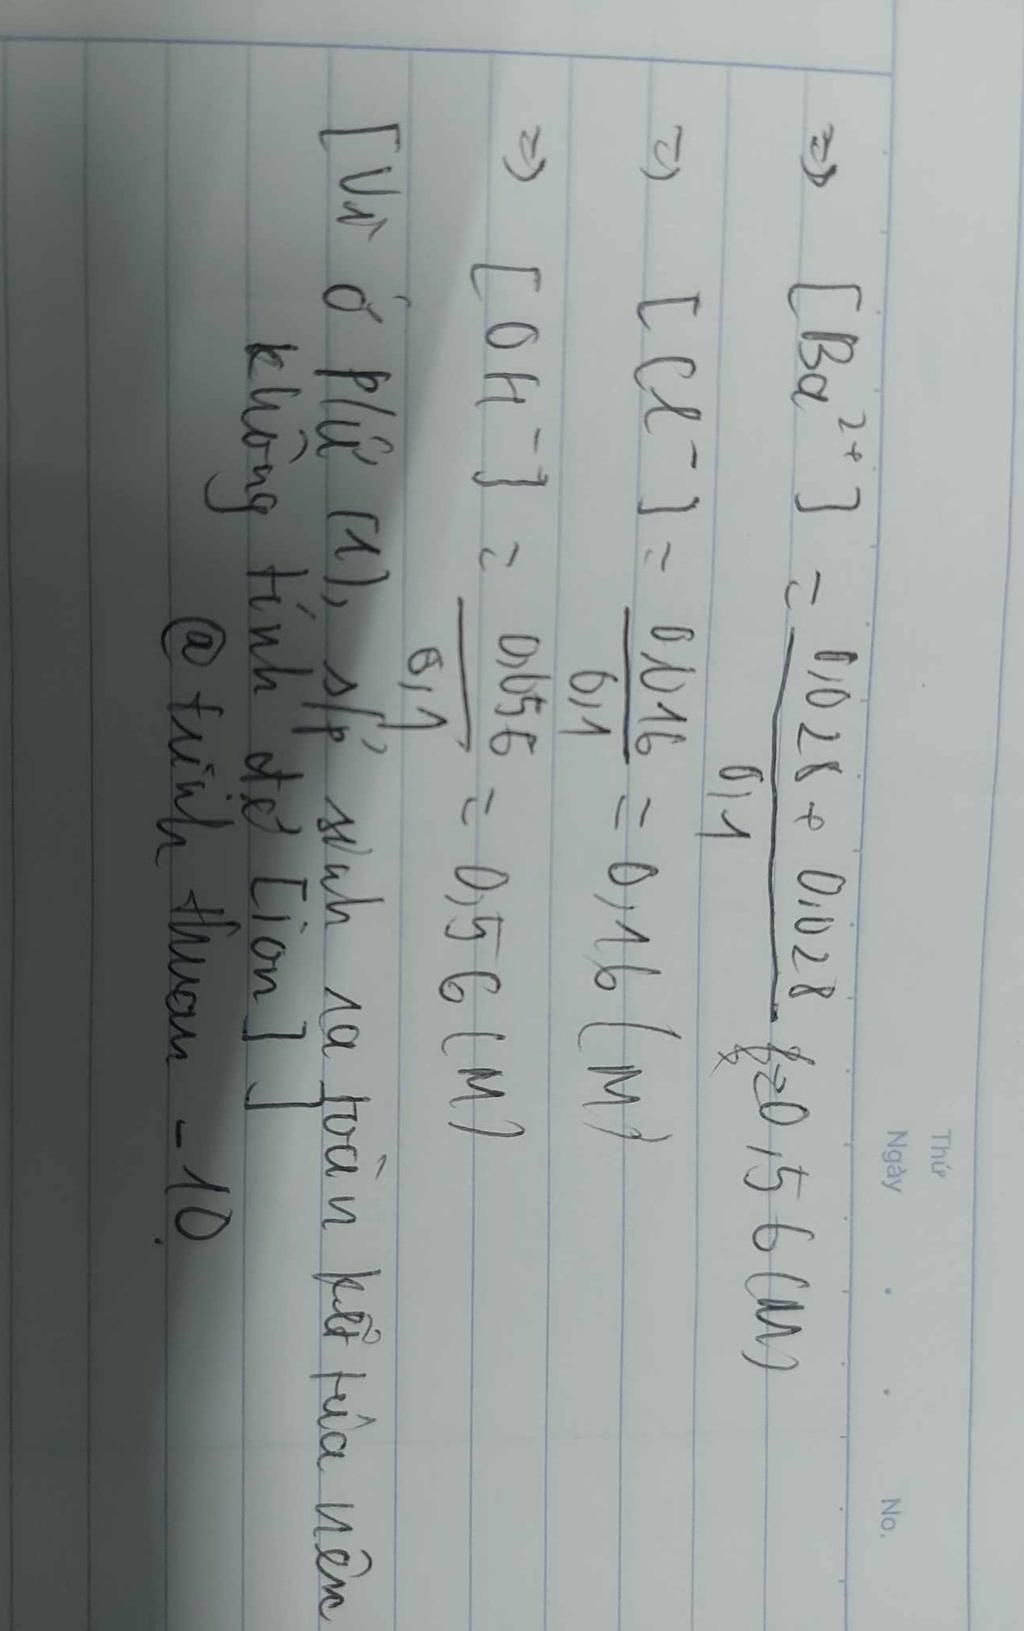 Thứ
Ngày . . No.
=> [Ba²⁺] = (0,028 + 0,028)/0,1 = 0,56 (M)
=> [Cl⁻] = 0,016/0,1 = 0,16 (M)
=> [OH⁻] = 0,056/0,1 = 0,56 (M)
[Vì ở p/ứ (1), s/p sinh ra toàn kết tủa nên
không tính đc [ion]]
@ trinh thuan - 10.